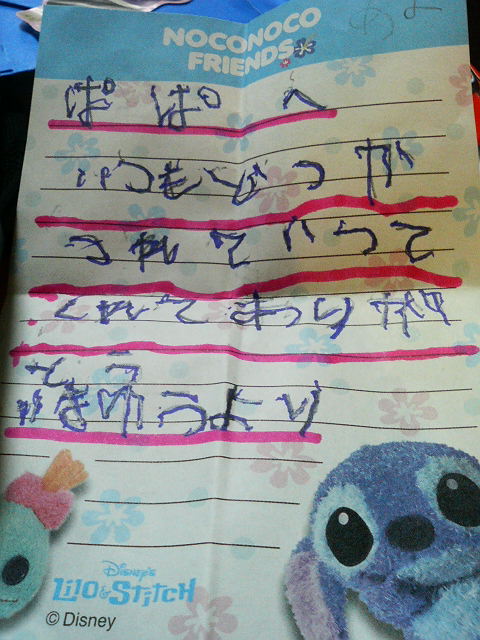 NOCONOCO
FRIENDS
ぱぱ へ
いつもどっ が
つれていって
くれて
とう
ゆうより
DISNEY'S
LILO & STITCH
© Disney